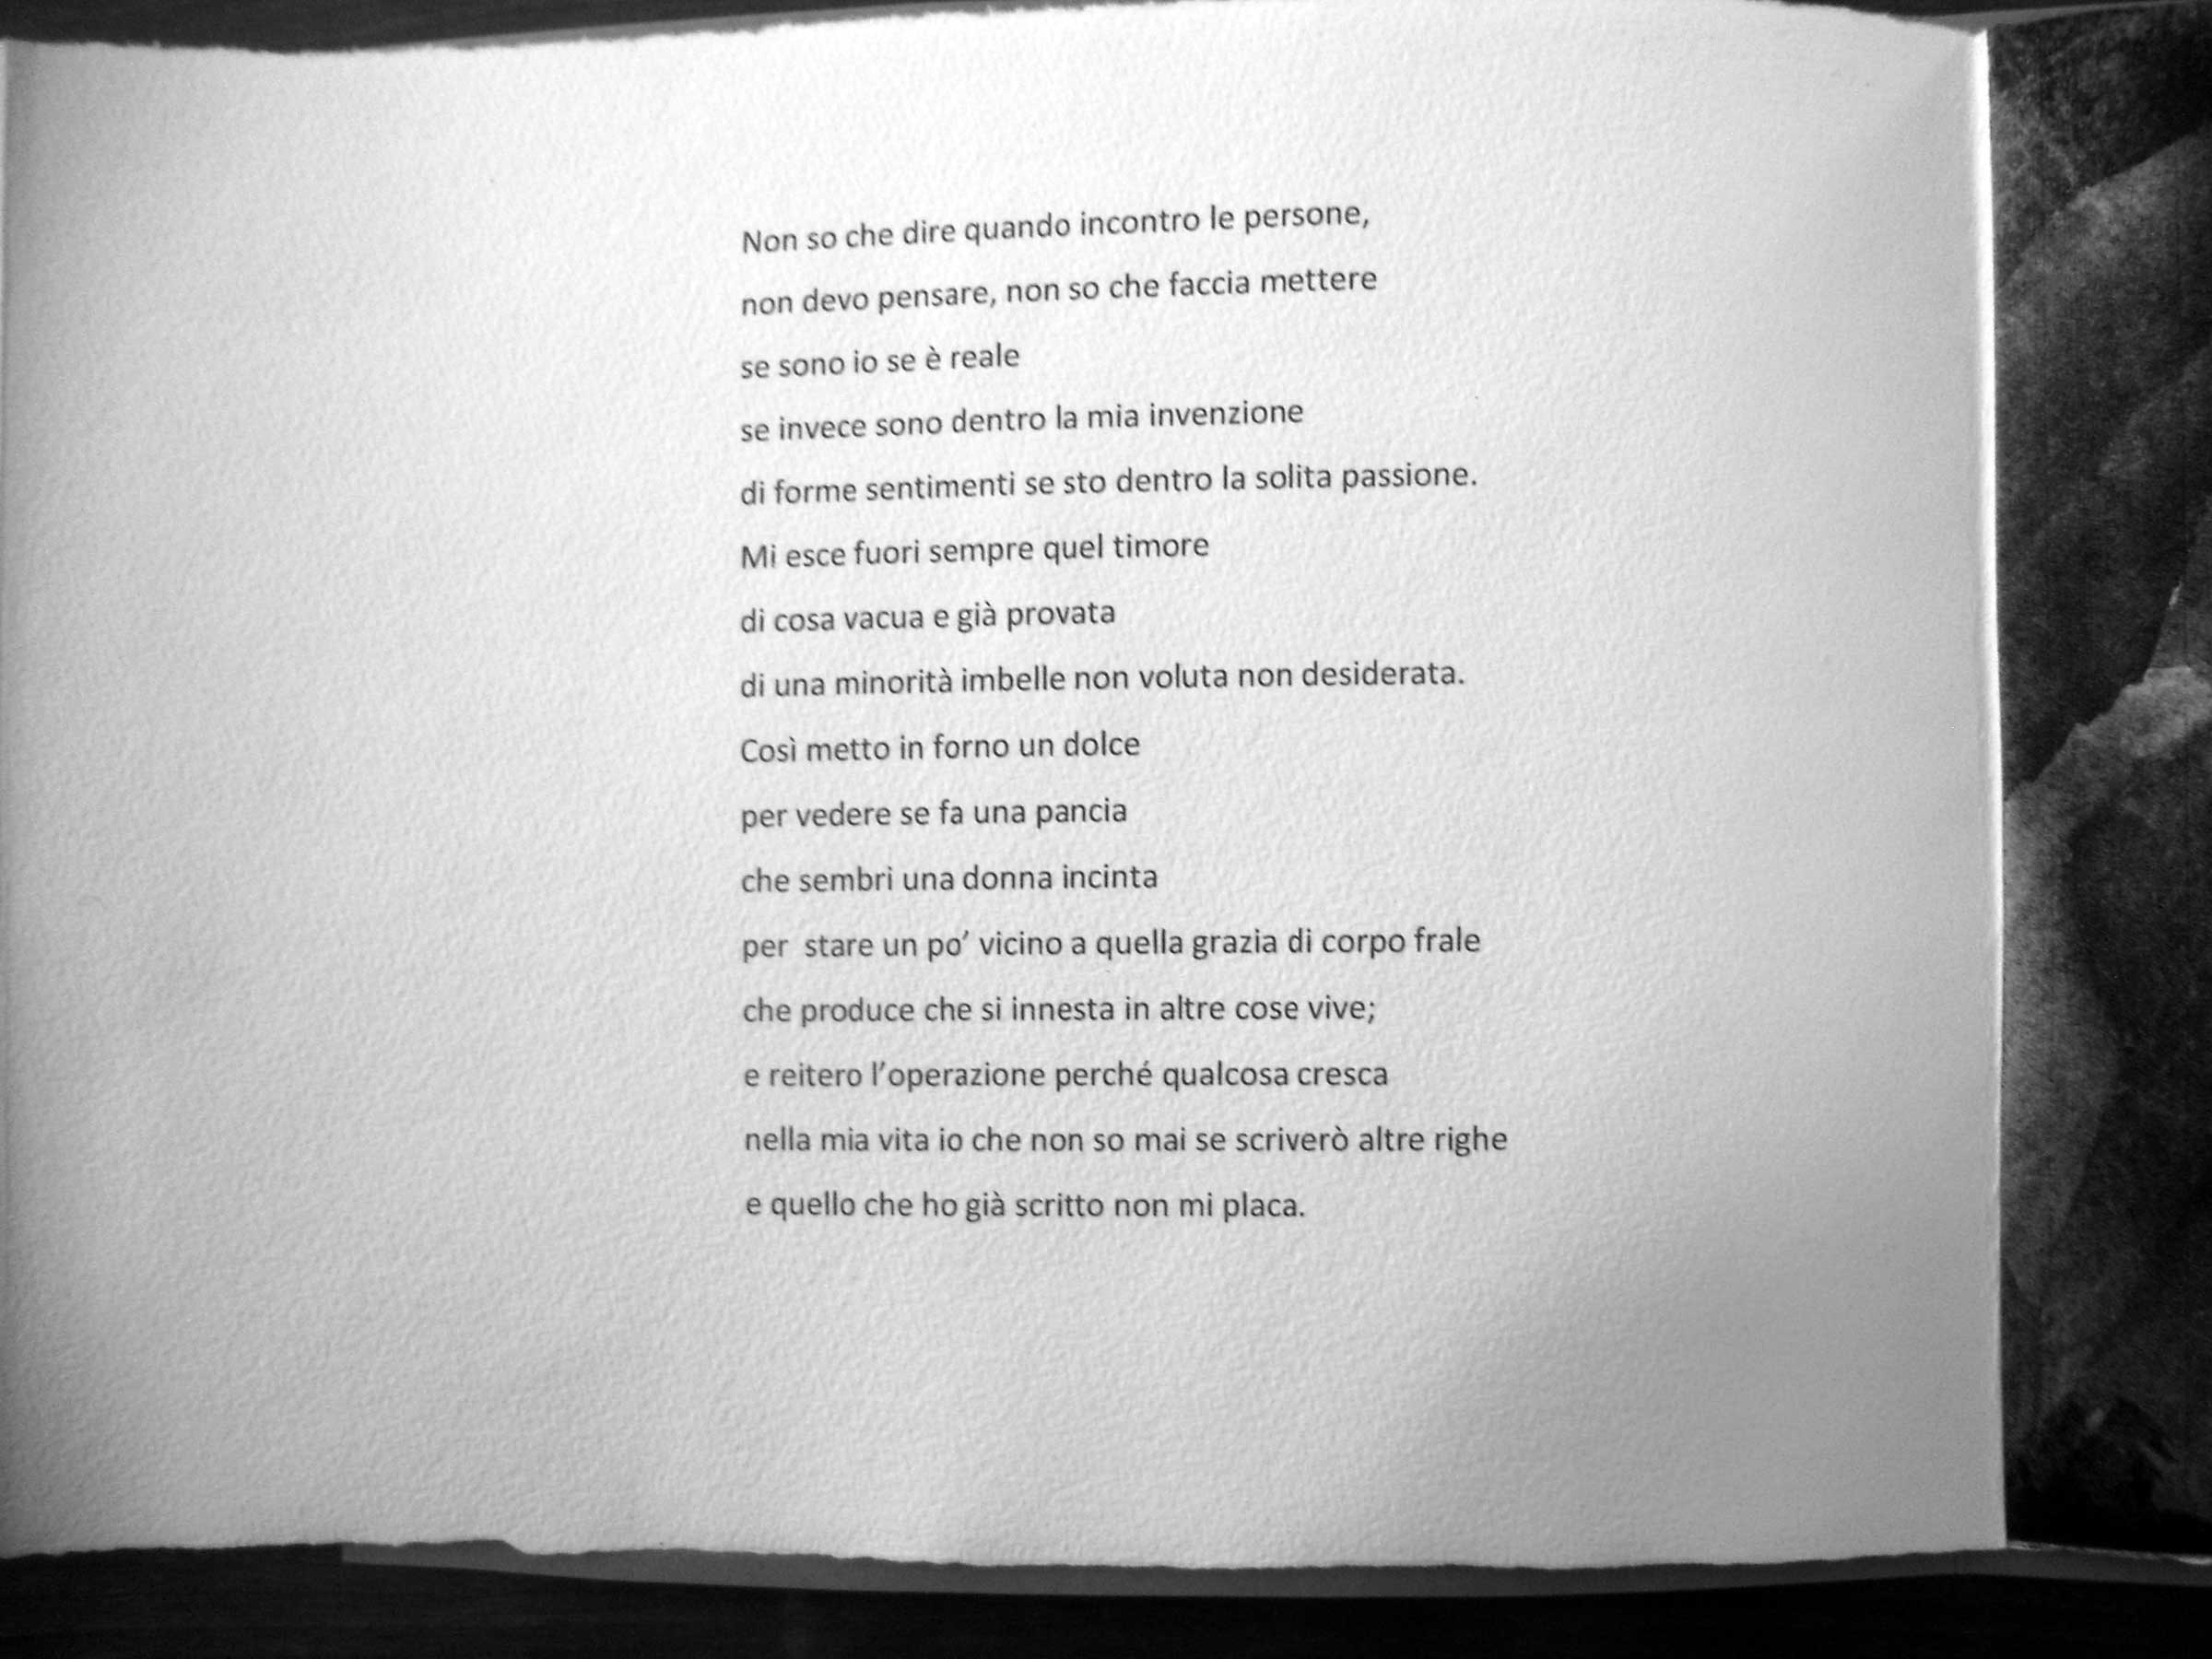 Non so che dire quando incontro le persone,
non devo pensare, non so che faccia mettere
se sono io se è reale
se invece sono dentro la mia invenzione
di forme sentimenti se sto dentro la solita passione.
Mi esce fuori sempre quel timore
di cosa vacua e già provata
di una minorità imbelle non voluta non desiderata.
Così metto in forno un dolce
per vedere se fa una pancia
che sembri una donna incinta
per  stare un po’ vicino a quella grazia di corpo frale
che produce che si innesta in altre cose vive;
e reitero l’operazione perché qualcosa cresca
nella mia vita io che non so mai se scriverò altre righe
e quello che ho già scritto non mi placa.